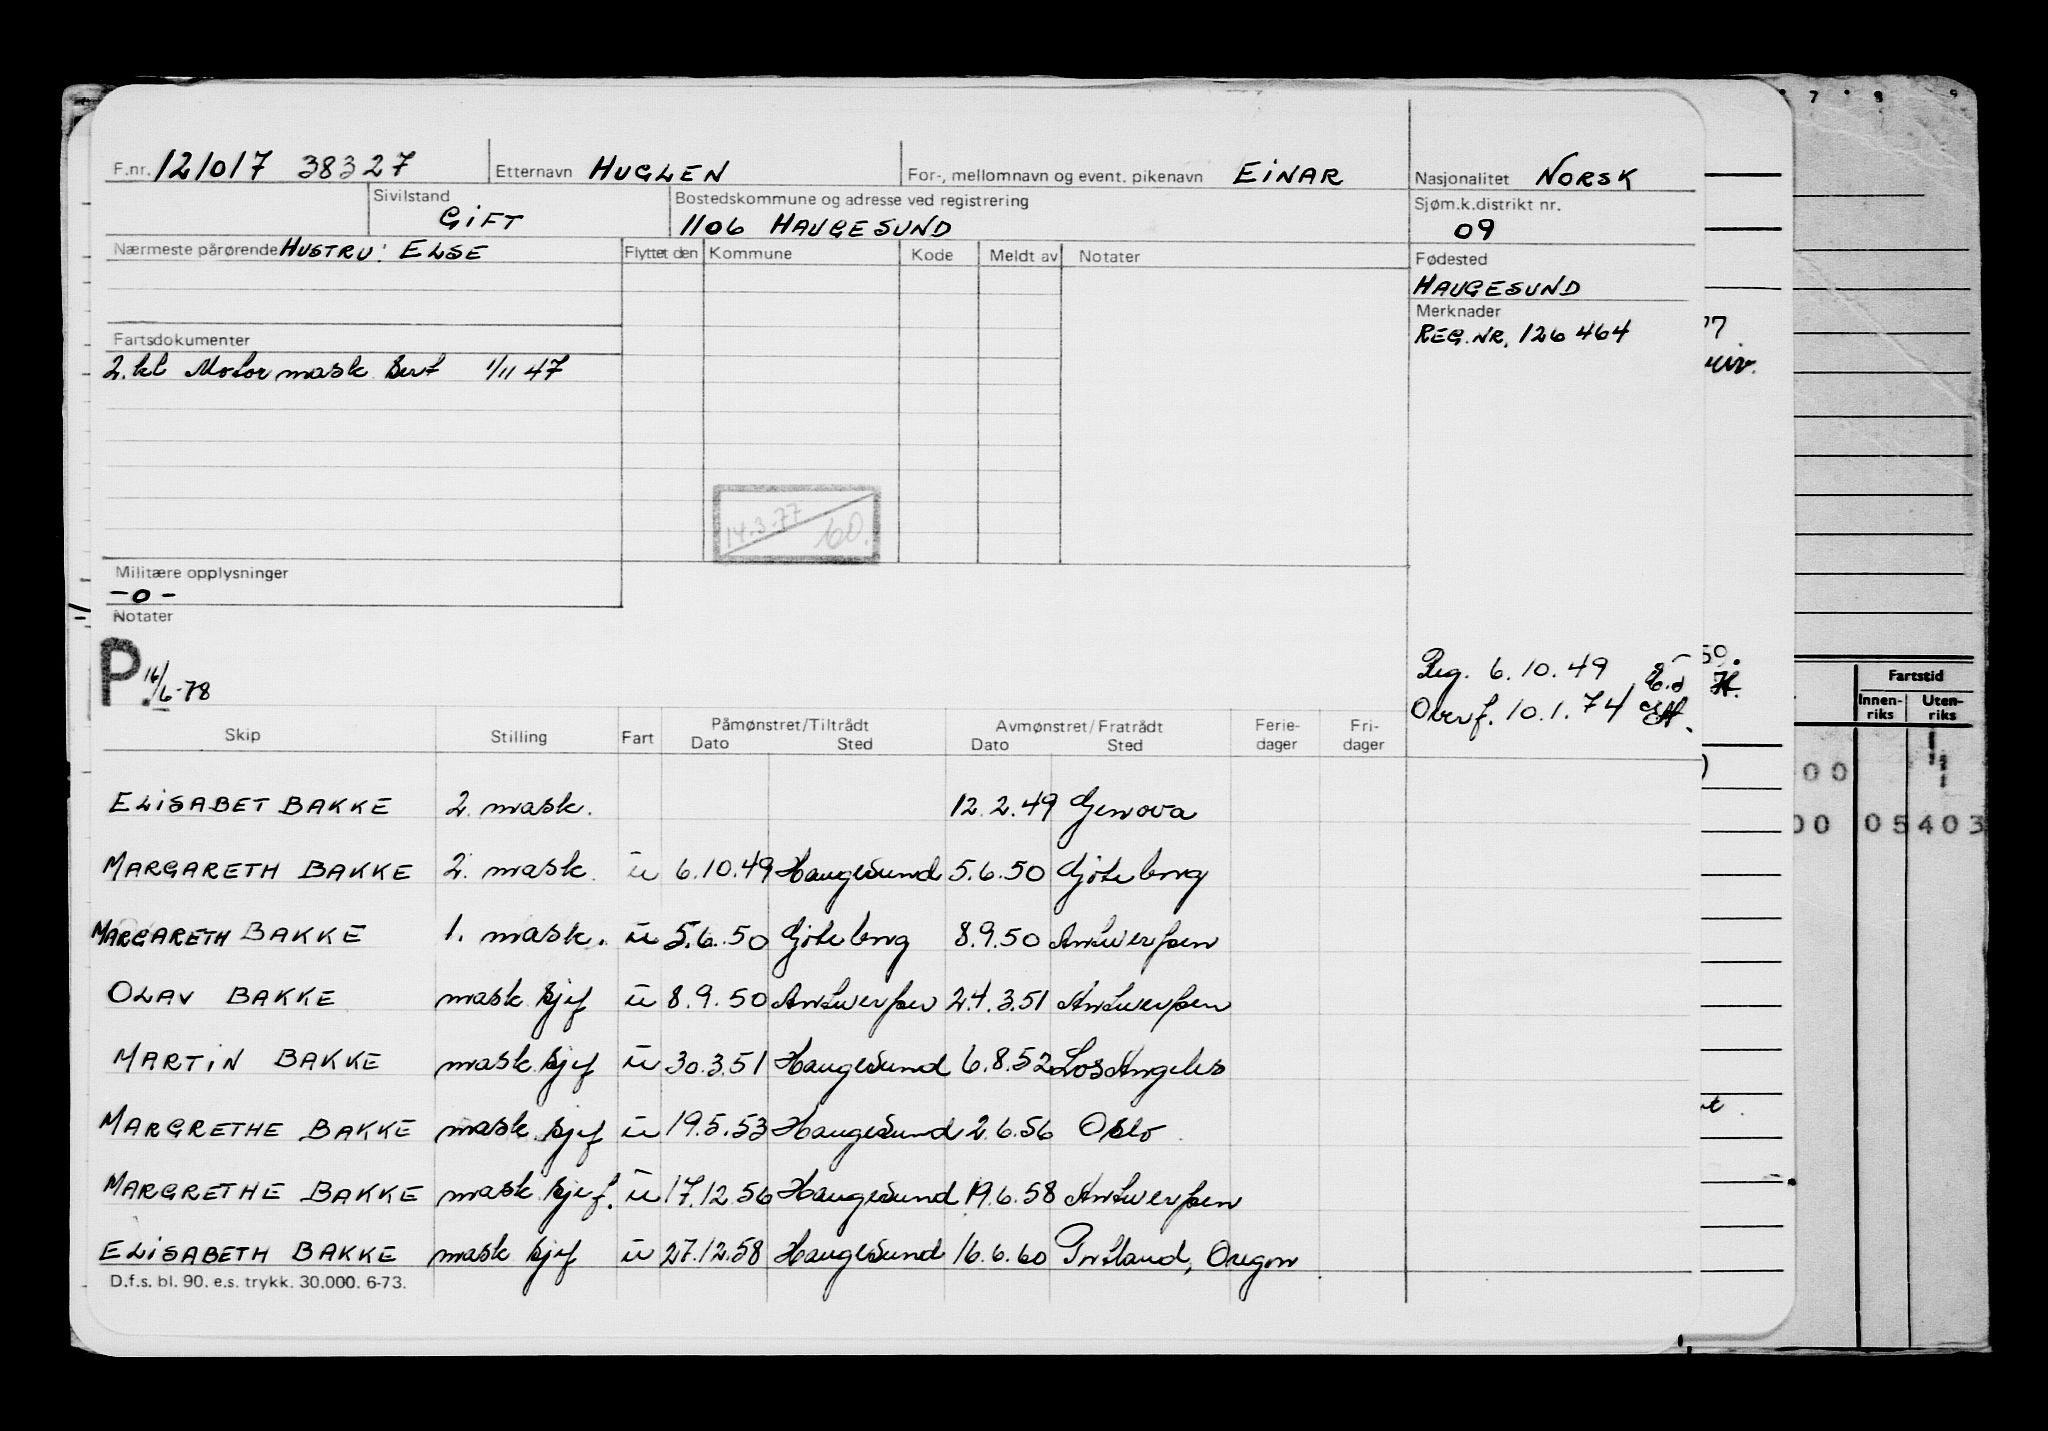 F.nr. 121017 38327 Etternavn HUGLEN For-, mellomnavn og event. pikenavn EINAR Nasjonalitet NORSK
Sivilstand GIFT Bostedskommune og adresse ved registrering 1106 HAUGESUND Sjøm.k.distrikt nr. 09
Nærmeste pårørende HUSTRU: ELSE Flyttet den Kommune Kode Meldt av Notater Fødested
HAUGESUND
Merknader
REG.NR. 126464
Fartsdokumenter
2. kl Motormask. Sert 1/11 47
14.3.77 60.
Militære opplysninger
-0-
Notater
P. 16/6-78
Reg. 6.10.49
Overf. 10.1.74
Skip Stilling Fart Påmønstret/Tiltrådt Dato Sted Avmønstret/Fratrådt Dato Sted Ferie-dager Fri-dager
ELISABET BAKKE 2. mask. 12.2.49 Genova
MARGARETH BAKKE 2. mask. u 6.10.49 Haugesund 5.6.50 Gøteborg
MARGARETH BAKKE 1. mask. u 5.6.50 Gøteborg 8.9.50 Antwerpen
OLAV BAKKE mask.sjef u 8.9.50 Antwerpen 24.3.51 Antwerpen
MARTIN BAKKE mask.sjef u 30.3.51 Haugesund 6.8.52 Los Angeles
MARGRETHE BAKKE mask.sjef u 19.5.53 Haugesund 2.6.56 Oslo
MARGRETHE BAKKE mask.sjef. u 17.12.56 Haugesund 19.6.58 Antwerpen
ELISABETH BAKKE mask.sjef u 27.12.58 Haugesund 16.6.60 Portland, Oregon
D.f.s. bl. 90. e.s. trykk. 30.000. 6-73.
7 8 9
Fartstid
Innen-riks Uten-riks
00
00 05403